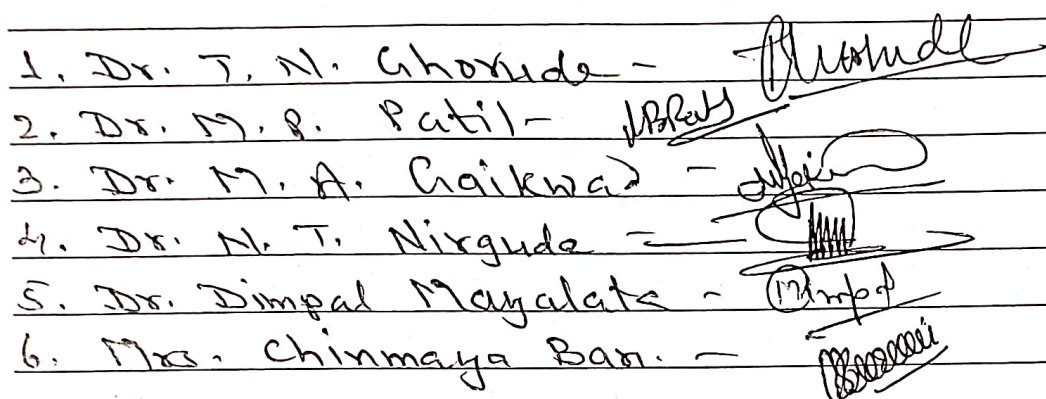 1. Dr. T. N. Ghorude -
2. Dr. M. B. Patil -
3. Dr. M. A. Gaikwad -
4. Dr. N. T. Nirgude -
5. Dr. Dimpal Mayalata -
6. Mrs. Chinmaya Bari. -